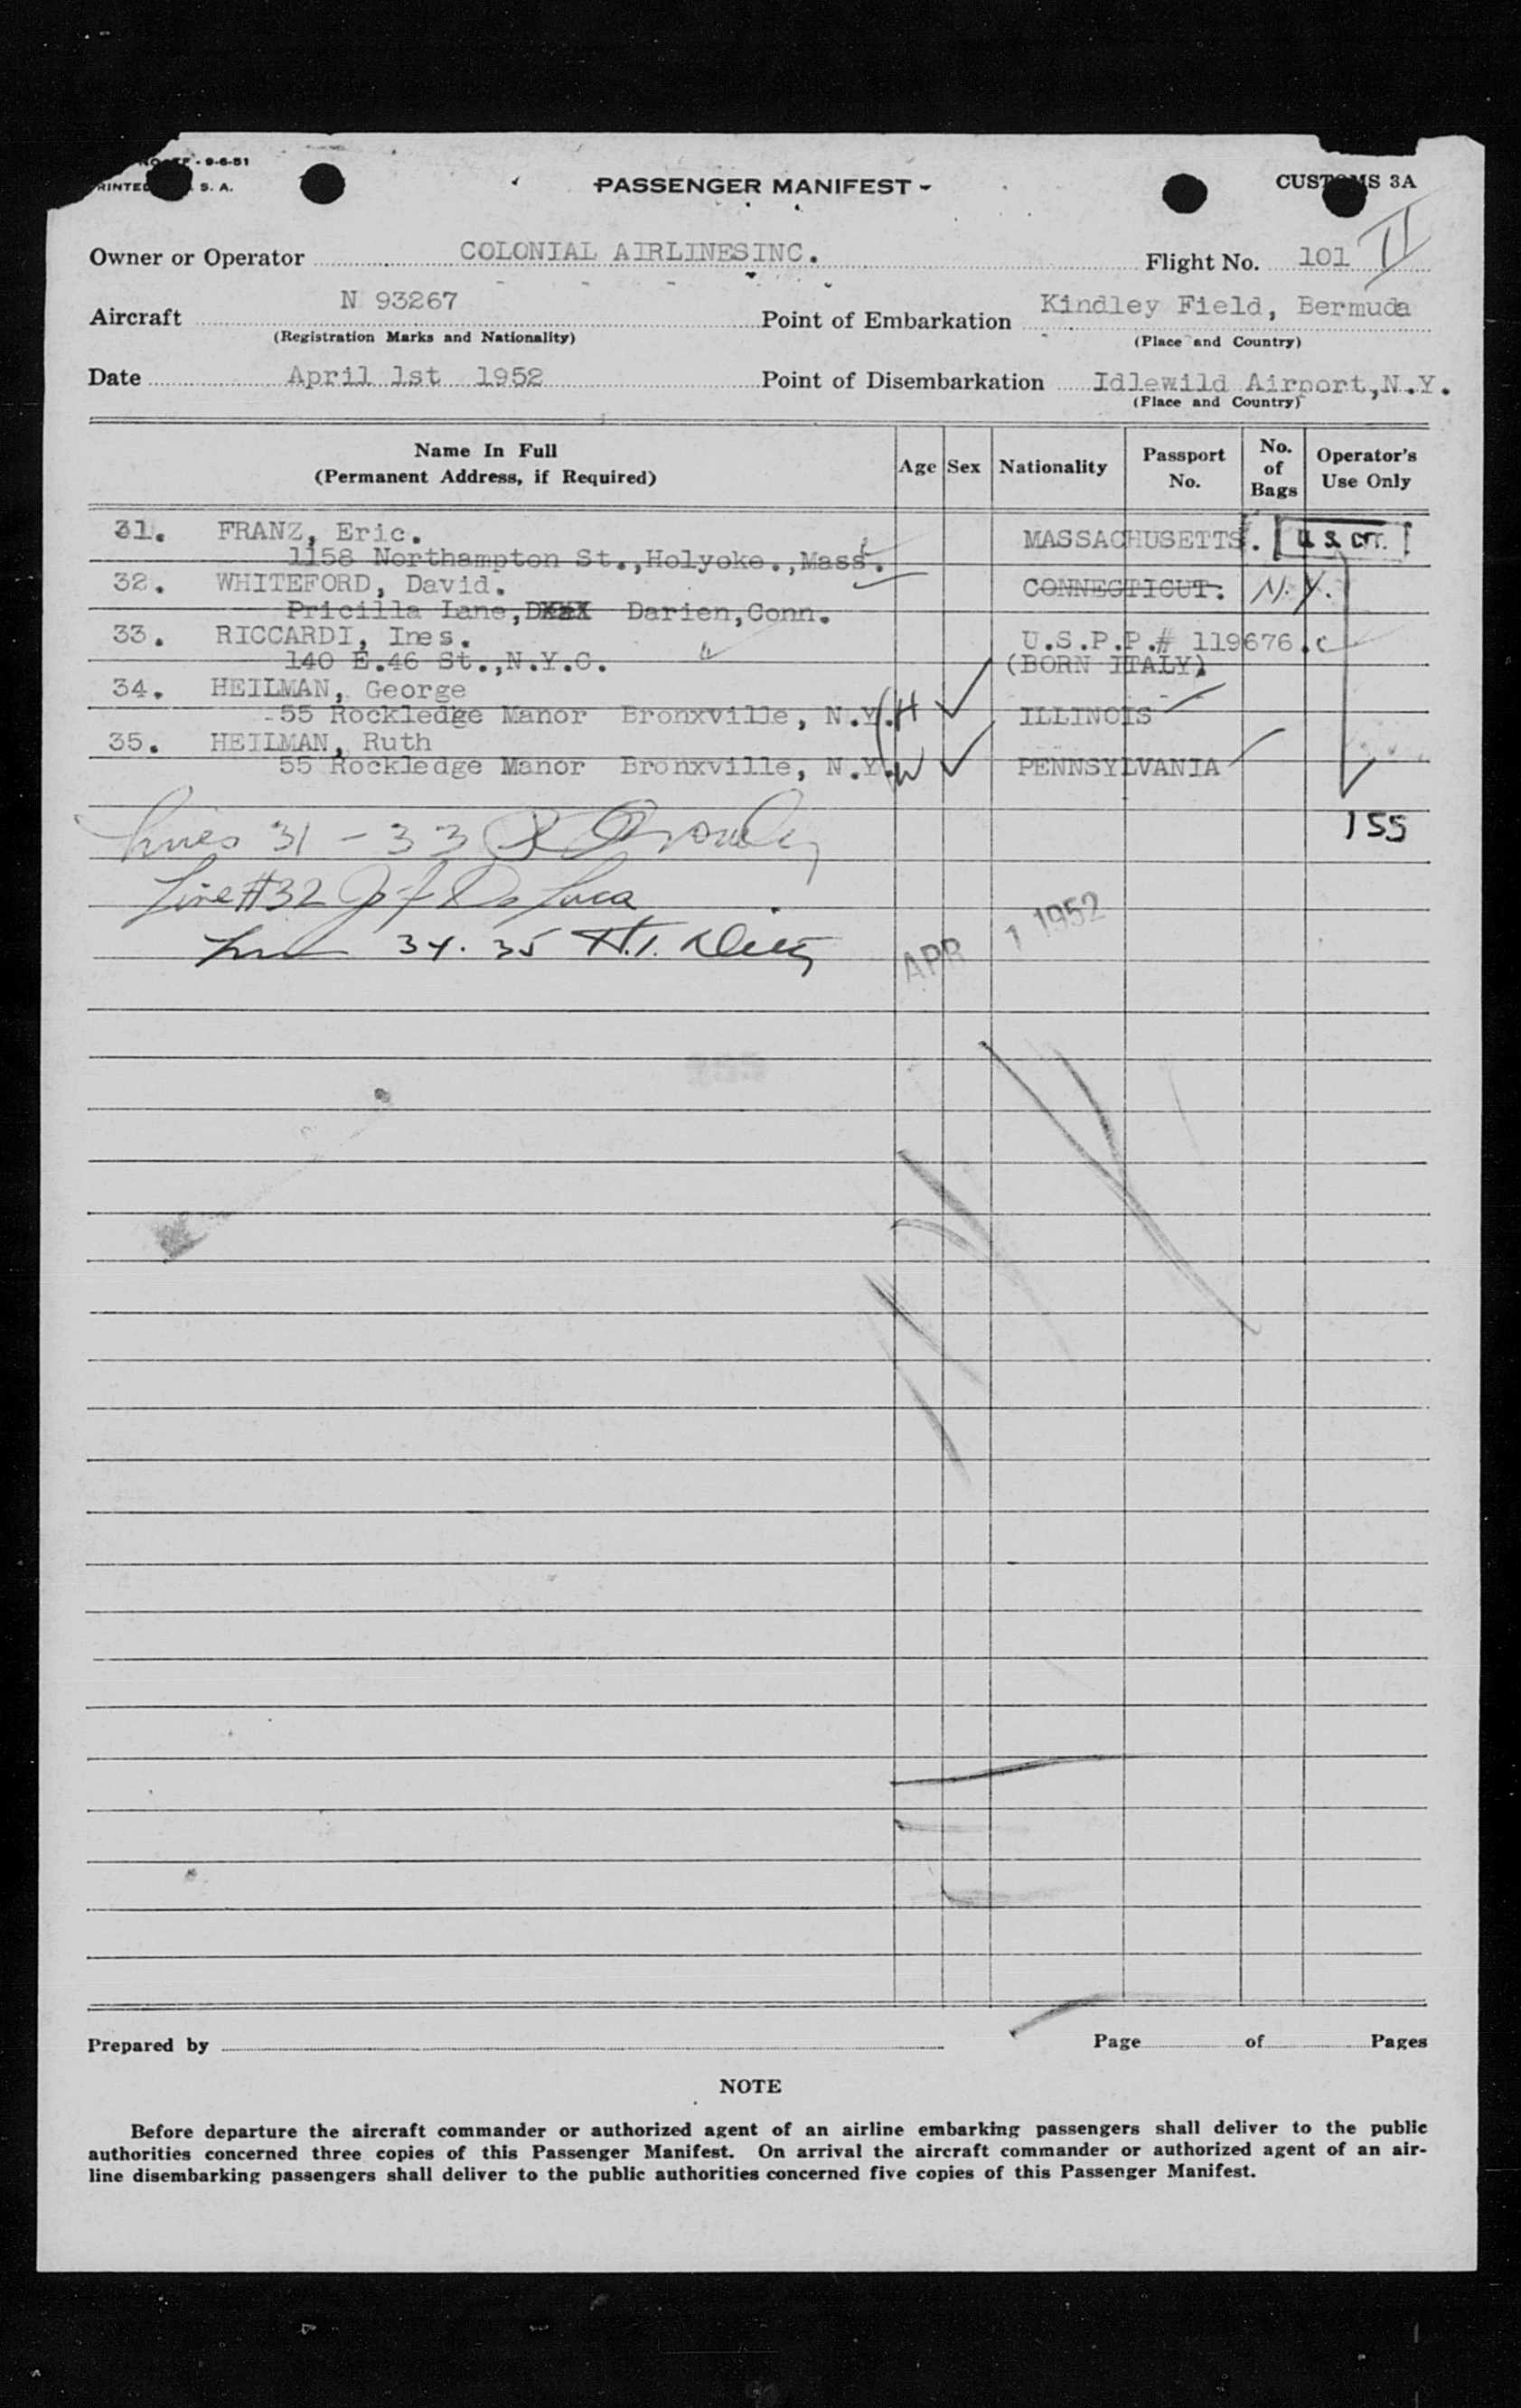 - 9-6-51
PRINTED S. A.
PASSENGER MANIFEST -
CUSTOMS 3A
Owner or Operator COLONIAL AIRLINESINC. Flight No. 101 II
Aircraft N 93267 Point of Embarkation Kindley Field, Bermuda
(Registration Marks and Nationality) (Place and Country)
Date April 1st 1952 Point of Disembarkation Idlewild Airport,N.Y.
(Place and Country)
Name In Full
(Permanent Address, if Required)
Age Sex Nationality Passport No. No. of Bags Operator's Use Only
31. FRANZ, Eric. MASSACHUSETTS. U.S. CIT.
1158 Northampton St.,Holyoke.,Mass.
32. WHITEFORD, David. CONNECTICUT. N.Y.
Pricilla Lane, Darien,Conn.
33. RICCARDI, Ines. U.S.P.P.# 119676.
140 E.46 St.,N.Y.C. (BORN ITALY)
34. HEILMAN, George
55 Rockledge Manor Bronxville, N.Y. H ILLINOIS
35. HEILMAN, Ruth
55 Rockledge Manor Bronxville, N.Y. W PENNSYLVANIA
155
Lines 31 - 33
Line #32
34. 35
APR 1 1952
Prepared by Page of Pages
NOTE
Before departure the aircraft commander or authorized agent of an airline embarking passengers shall deliver to the public
authorities concerned three copies of this Passenger Manifest. On arrival the aircraft commander or authorized agent of an air-
line disembarking passengers shall deliver to the public authorities concerned five copies of this Passenger Manifest.